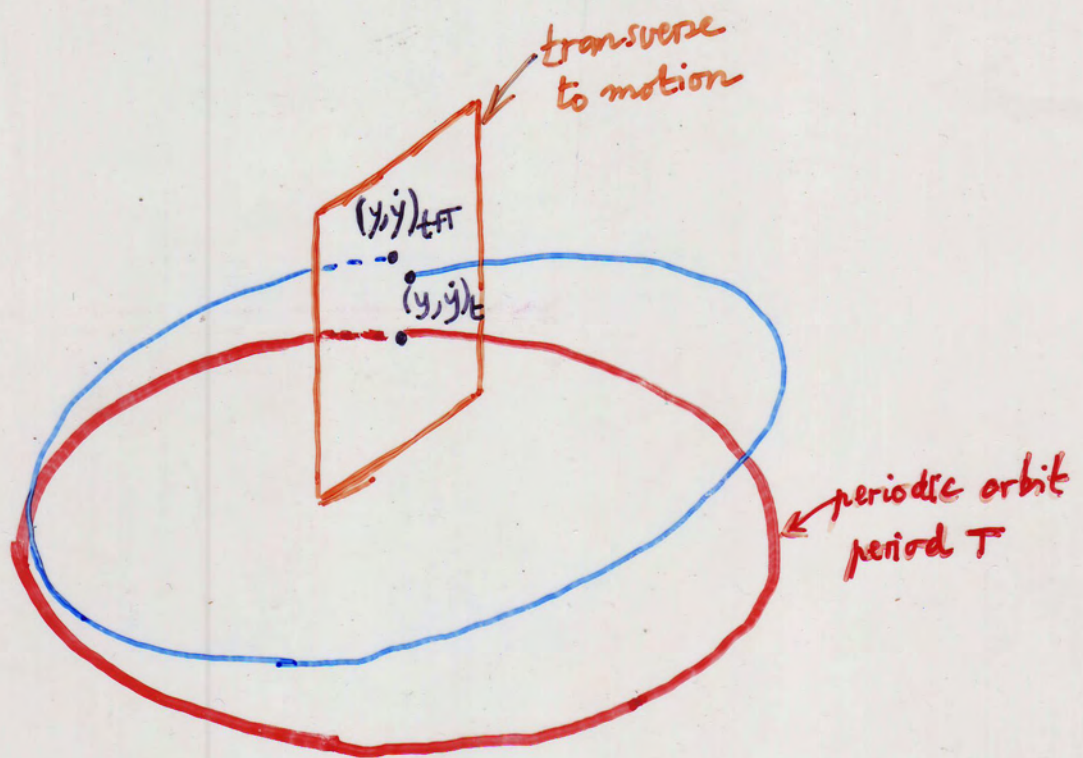 transverse
to motion
(y,ẏ)t+T
(y,ẏ)t
periodic orbit
period T